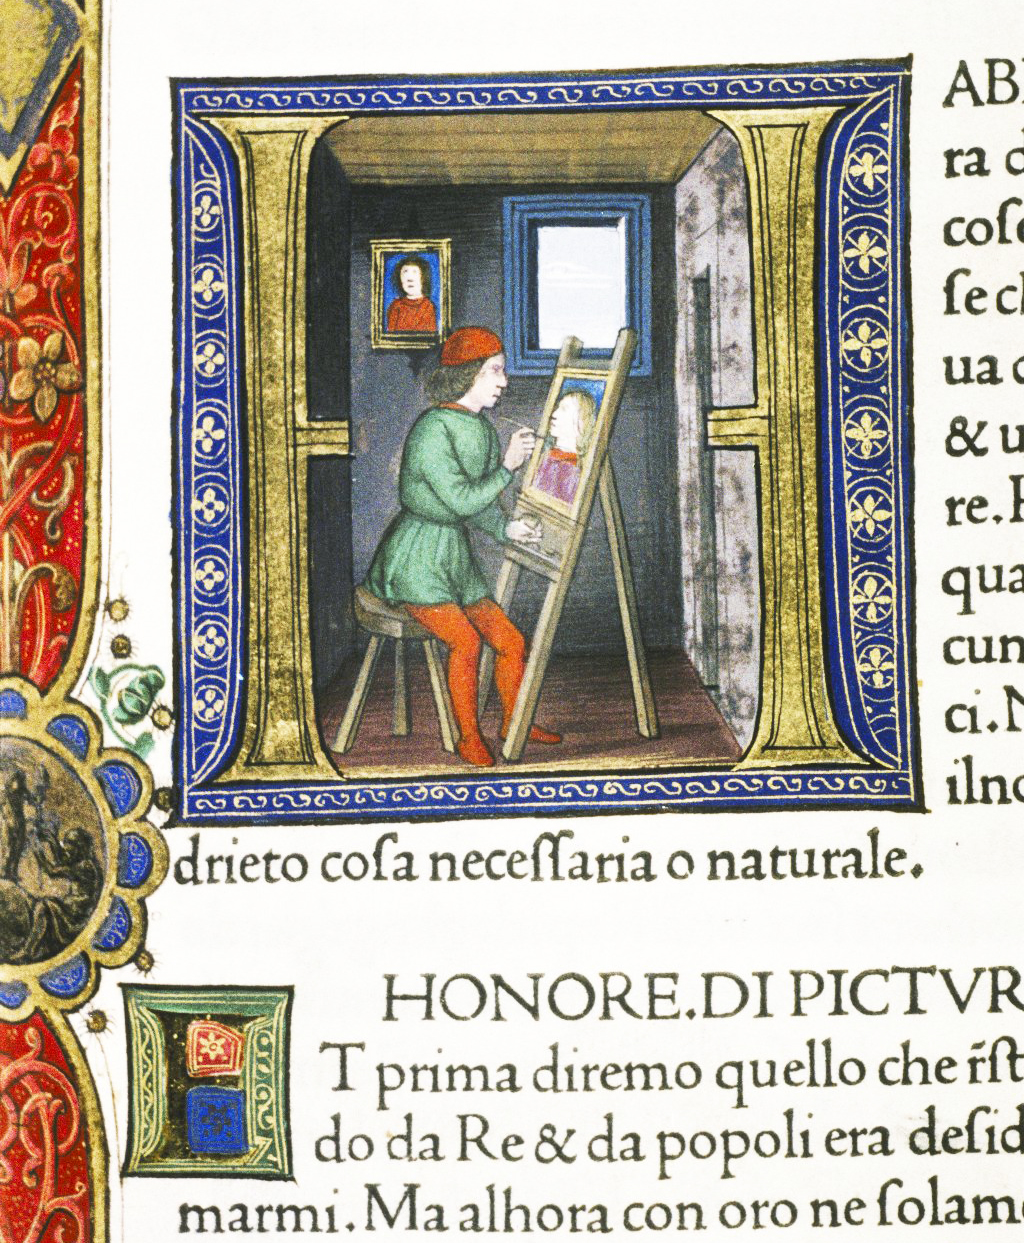 H ABI
ra d
coſe
ſe ch
ua c
& u
re. P
qua
cun
ci. N
ilno
drieto coſa neceſſaria o naturale.
HONORE. DI PICTVR
E T prima diremo quello che r̃ſt
do da Re & da popoli era deſid
marmi. Ma alhora con oro ne ſolame